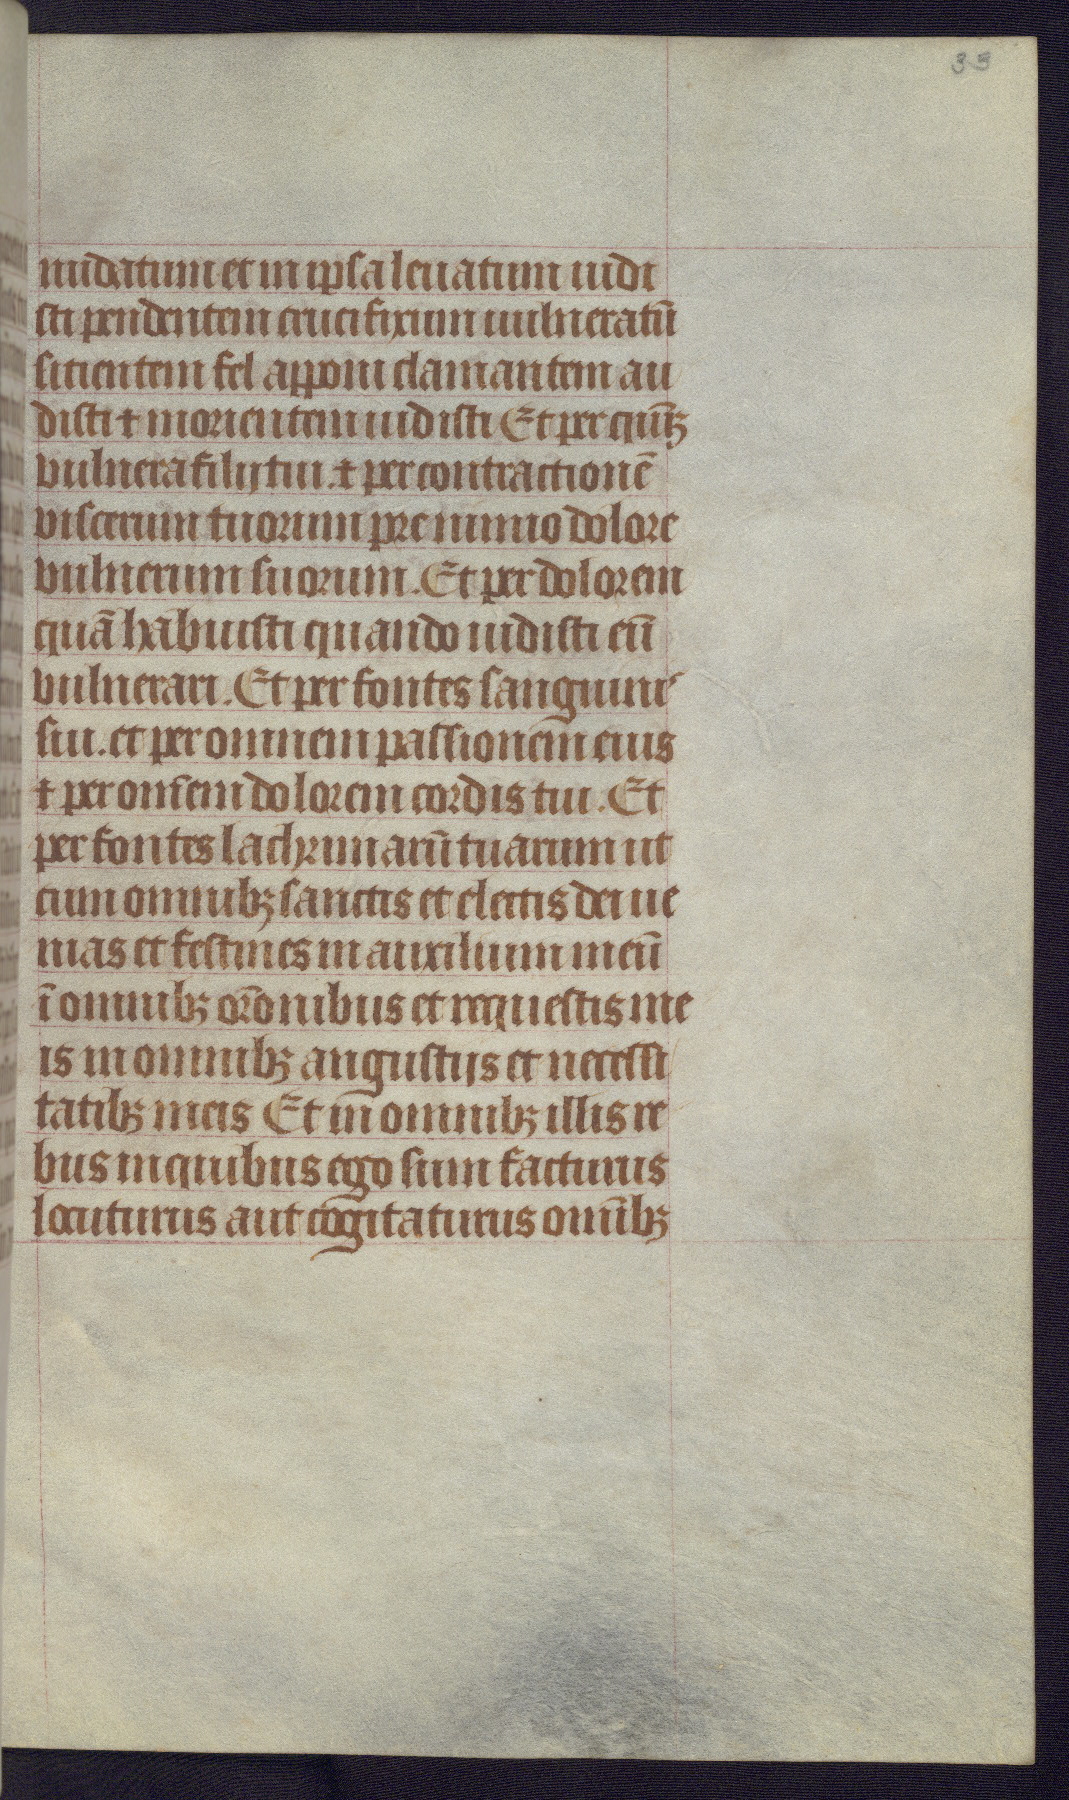 33
nudatum et in ipsa leuatum uidi
sti pendentem crucifixum uulneratū
sitientem fel apponi clamantem au
disti ⁊ morientem uidisti Et per qūiqꝫ
vulnera filij tui. ⁊ per contractionē
viscerum tuorum pre nimio dolore
vulnerum suorum. Et per dolorem
quā habuisti quando uidisti eū
vulnerari. Et per fontes sanguinis
sui. et per omnem passionem eius
⁊ per om̄em dolorem cordis tui. Et
per fontes lachrimarū tuarum ut
cum omnibꝫ sanctis et electis dei ue
nias et festines in auxilium meū
ī omnibꝫ or̄onibus et requestis me
is in omnibꝫ angustijs et necessi
tatibꝫ meis Et in omnibꝫ illis re
bus in quibus ego sum facturus
locuturus aut cogitaturus omībꝫ